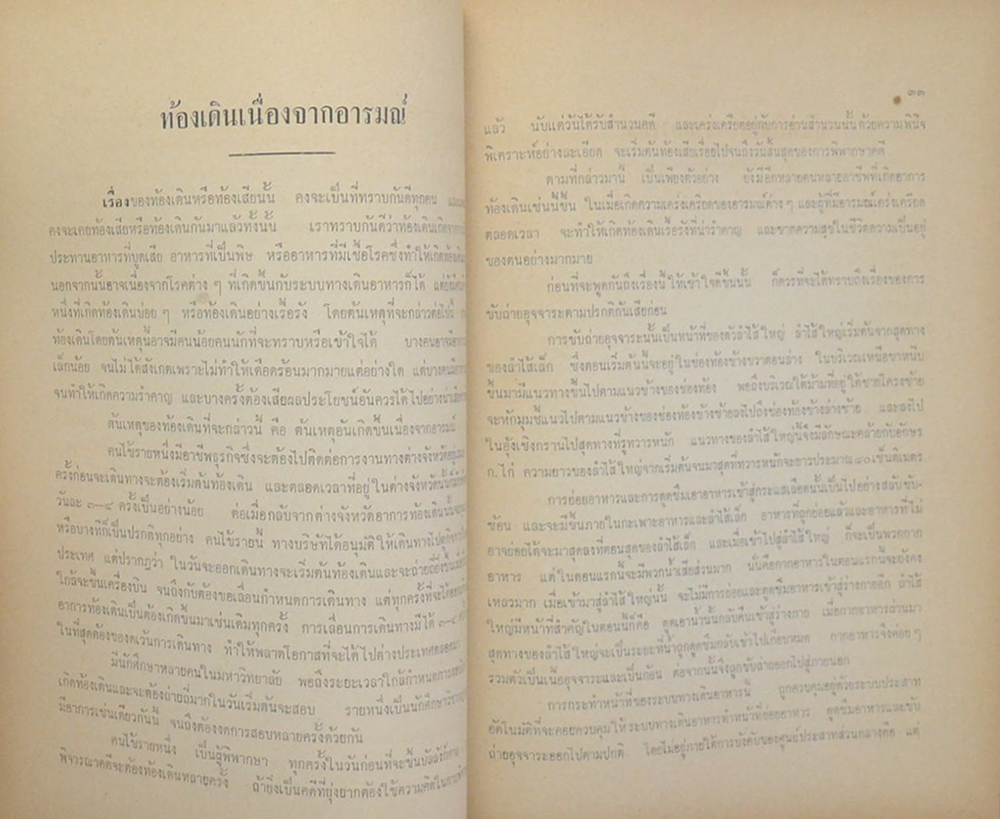 ท้องเดินเนื่องจากอารมณ์
เรื่องของท้องเดินหรือท้องเสียนั้น คงจะเป็นที่ทราบกันดีทุกคน
คงจะเคยท้องเสียหรือท้องเดินกันมาแล้วทั้งนั้น เราทราบกันดีว่าท้องเดินเกิดจาก
ประทานอาหารที่บูดเสีย อาหารที่เป็นพิษ หรืออาหารที่มีเชื้อโรคซึ่งทำให้เกิดท้องเดิน
นอกจากนั้นอาจเนื่องจากโรคต่าง ๆ ที่เกิดขึ้นกับระบบทางเดินอาหารก็ได้
หนึ่งที่เกิดท้องเดินบ่อย ๆ หรือท้องเดินอย่างเรื้อรัง โดยต้นเหตุที่จะกล่าวต่อไปนี้
ท้องเดินโดยต้นเหตุนี้อาจมีคนน้อยคนนักที่จะทราบหรือเข้าใจได้ บางคนอาจมีอาการ
เล็กน้อย จนไม่ได้สังเกตเพราะไม่ทำให้เดือดร้อนมากมายแต่อย่างใด แต่บางคน
จนทำให้เกิดความรำคาญ และบางครั้งต้องเสียผลประโยชน์อันควรได้ไปอย่างน่าเสียดาย
ต้นเหตุของท้องเดินที่จะกล่าวนี้ คือ ต้นเหตุอันเกิดขึ้นเนื่องจากอารมณ์
คนไข้รายหนึ่งมีอาชีพธุรกิจซึ่งจะต้องไปติดต่อการงานทางต่างจังหวัดอยู่เสมอ
ครั้งก่อนจะเดินทางจะต้องเริ่มต้นท้องเดิน และตลอดเวลาที่อยู่ในต่างจังหวัดนั้น
วันละ ๓–๔ ครั้งเป็นอย่างน้อย ต่อเมื่อกลับจากต่างจังหวัดอาการท้องเดินนั้น
หรือบางทีก็เป็นปรกติทุกอย่าง คนไข้รายนี้ ทางบริษัทได้อนุมัติให้เดินทางไป
ประเทศ แต่ปรากฏว่า ในวันจะออกเดินทางจะเริ่มต้นท้องเดินและจะถ่ายถี่ยิ่งขึ้น
ใกล้จะขึ้นเครื่องบิน จนถึงกับต้องขอเลื่อนกำหนดการเดินทาง แต่ทุกครั้งที่จะ
อาการท้องเดินเป็นต้องเกิดขึ้นมาเช่นเดิมทุกครั้ง การเลื่อนการเดินทางมีได้ ๓–๔
ในที่สุดต้องของดเว้นการเดินทาง ทำให้พลาดโอกาสที่จะได้ไปต่างประเทศ
มีนักศึกษาหลายคนในมหาวิทยาลัย พอถึงระยะเวลาใกล้กำหนดการสอบ
เกิดท้องเดินและจะต้องถ่ายถี่มากในวันเริ่มต้นจะสอบ รายหนึ่งเป็นนักศึกษา
มีอาการเช่นเดียวกันนี้ จนถึงต้องงดการสอบหลายครั้งด้วยกัน
คนไข้รายหนึ่ง เป็นผู้พิพากษา ทุกครั้งในวันก่อนที่จะขึ้นบัลลังก์
พิจารณาคดีจะต้องท้องเดินหลายครั้ง ถ้ายิ่งเป็นคดีที่ยุ่งยากต้องใช้ความคิด
๓๓
แล้ว นับแต่วันได้รับสำนวนคดี และเคร่งเครียดอยู่กับการอ่านสำนวนนั้นด้วยความพินิจ
พิเคราะห์อย่างละเอียด จะเริ่มต้นท้องเสียเรื่อยไปจนถึงวันสิ้นสุดของการพิพากษาคดี
ตามที่กล่าวมานี้ เป็นเพียงตัวอย่าง ยังมีอีกหลายคนหลายอาชีพที่เกิดอาการ
ท้องเดินเช่นนี้ขึ้น ในเมื่อเกิดความเคร่งเครียดของอารมณ์ต่าง ๆ และผู้ที่มีอารมณ์เคร่งเครียด
ตลอดเวลา จะทำให้เกิดท้องเดินเรื้อรังที่น่ารำคาญ และขาดความสุขในชีวิตความเป็นอยู่
ของตนอย่างมากมาย
ก่อนที่จะพูดกันถึงเรื่องนี้ให้เข้าใจดีขึ้นนั้น ก็ควรที่จะได้ทราบถึงเรื่องของการ
ขับถ่ายอุจจาระตามปรกติกันเสียก่อน
การขับถ่ายอุจจาระนั้นเป็นหน้าที่ของตัวลำไส้ใหญ่ ลำไส้ใหญ่เริ่มต้นจากสุดทาง
ของลำไส้เล็ก ซึ่งตอนเริ่มต้นนี้จะอยู่ในช่องท้องข้างขวาตอนล่าง ในบริเวณเหนือขาหนีบ
ขึ้นมามีแนวทางขึ้นไปตามแนวข้างของช่องท้อง พอถึงบริเวณใต้ม้ามที่อยู่ใต้ชายโครงซ้าย
จะหักมุมชี้แนวไปตามแนวข้างของช่องท้องข้างซ้ายลงไปถึงช่องท้องข้างล่างซ้าย และลงไป
ในอุ้งเชิงกรานไปสุดทางที่รูทวารหนัก แนวทางของลำไส้ใหญ่นี้จึงมีลักษณะคล้ายกับอักษร
ก. ไก่ ความยาวของลำไส้ใหญ่จากเริ่มต้นจนมาสุดที่ทวารหนักจะยาวประมาณ ๘๐ เซ็นติเมตร
การย่อยอาหารและการดูดซึมเอาอาหารเข้าสู่กระแสเลือดนั้นเป็นไปอย่างสลับซับ-
ซ้อน และจะมีขึ้นภายในกะเพาะอาหารและลำไส้เล็ก อาหารที่ถูกย่อยแล้วและอาหารที่ไม่
อาจย่อยได้จะมาสุดลงที่ตอนสุดของลำไส้เล็ก และเมื่อเข้าไปสู่ลำไส้ใหญ่ ก็จะเป็นพวกกาก
อาหาร แต่ในตอนแรกนี้จะมีพวกน้ำเสียส่วนมาก นั่นคือกากอาหารในตอนแรกนี้จะยังคง
เหลวมาก เมื่อเข้ามาสู่ลำไส้ใหญ่นั้น จะไม่มีการย่อยและดูดซึมอาหารเข้าสู่ร่างกายอีก ลำไส้
ใหญ่มีหน้าที่สำคัญในตอนนี้ก็คือ ดูดเอาน้ำนั้นกลับคืนเข้าสู่ร่างกาย เมื่อกากอาหารผ่านมา
สุดทางของลำไส้ใหญ่จะเป็นระยะที่น้ำถูกดูดซึมกลับเข้าไปเกือบหมด กากอาหารจึงค่อย ๆ
รวมตัวเป็นเนื้ออุจจาระและเป็นก้อน ต่อจากนั้นจึงถูกขับถ่ายออกไปสู่ภายนอก
การกระทำหน้าที่ของระบบทางเดินอาหารนี้ ถูกควบคุมอยู่ด้วยระบบประสาท
อัตโนมัติที่จะคอยควบคุมให้ระบบทางเดินอาหารทำหน้าที่ย่อยอาหาร ดูดซึมอาหารและขับ
ถ่ายอุจจาระออกไปตามปกติ โดยไม่อยู่ภายใต้การบังคับของศูนย์ประสาทส่วนกลางคือ แต่